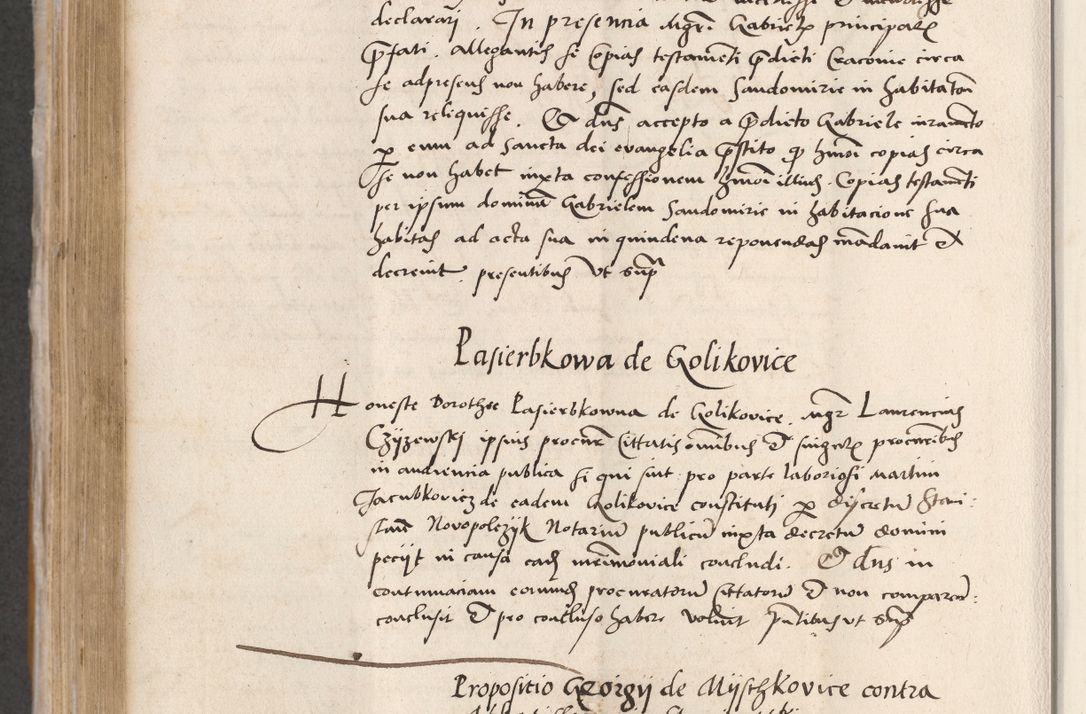 declarari. In presencia Mgri Gabrielis principalis
prefati. allegantis se copias testamenti predicti Cracovie circa
se adpresens non habere, sed easdem Sandomirie in habitacioni
sua reliquisse. Et dns accepto a predicto Gabriele iuramento
per eum ad sancta dei evangelia prestito quod hmoi copias circa
se non habet iuxta confessionem hmoi illius. Copias testamenti
per ipsum dominum Gabrielem Sandomirie in habitacione sua
habitas ad acta sua in quindena reponendas mandavit et
decrevit. presentibus ut supra
Pasierbkowa de Golikovice
Honeste Dorothee Pasierbkowna de Golikovice. Mgr Laurencius
Czyzewski ipsius procurator Cittatis omnibus et singulis procuratoribus
in audiencia publica si qui sint pro parte laboriosi Martini
Jacubkowicz de eadem Golikovice constituti per discretum Stani:
slaum Novopolczyk Notarium publicum iuxta decretum domini
peciit in causa eadem matrimoniali concludi. Et dns in
contumaciam eorundem procuratorum Cittatorum et non comparen:
conclusit et pro concluso habere voluit presentibus ut supra
Propositio Georgii de Myschkovice contra